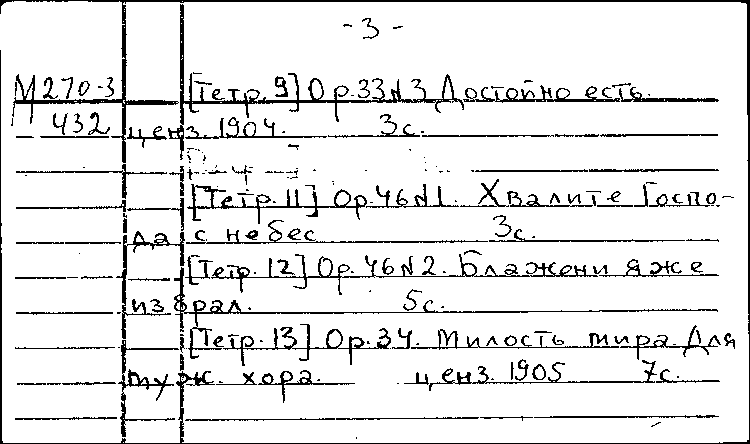 -3-
М270-3 [Тетр. 9] Op.33 N3 Достойно есть.
432 ценз. 1904. 3с.
[Тетр. 11] Op.46 N1. Хвалите Госпо-
да с небес 3с.
[Тетр. 12] Op.46 N2. Блажени яже
избрал. 5с.
[Тетр. 13] Op.34. Милость мира. Для
муж. хора. ценз. 1905 7с.